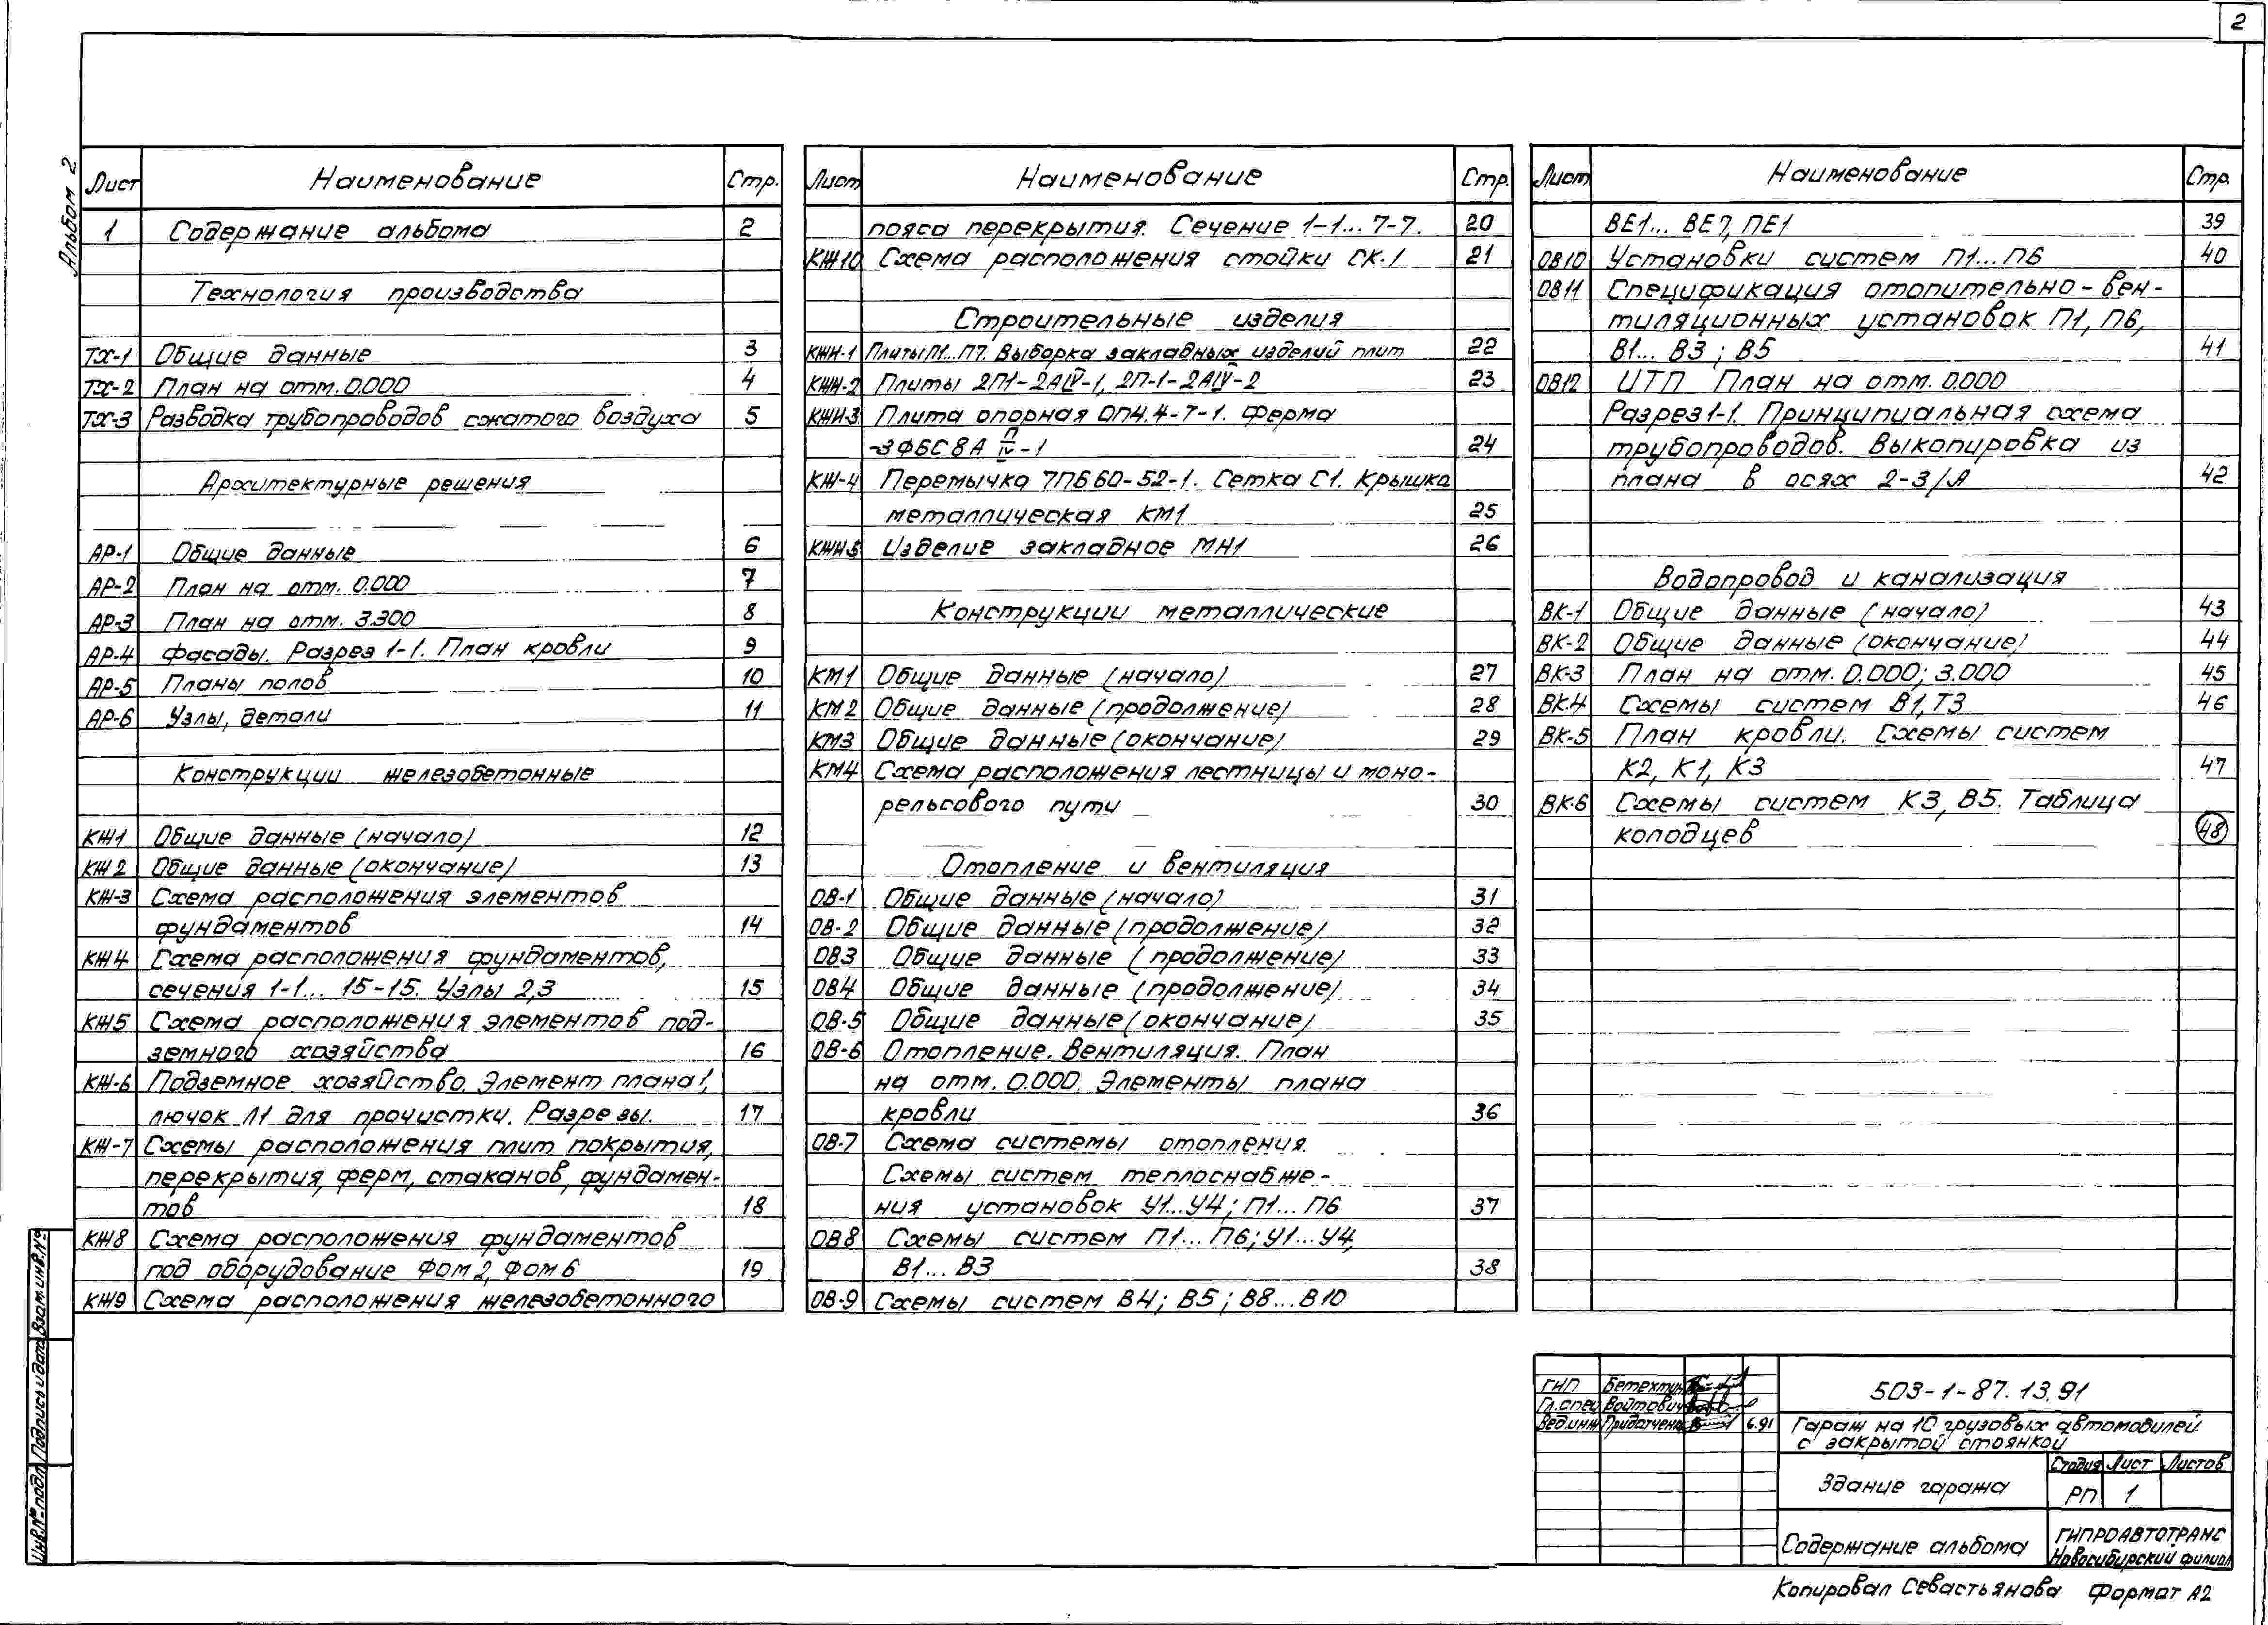 2
Альбом 2
Лист Наименование Стр.
1 Содержание альбома 2
Технология производства
ТХ-1 Общие данные 3
ТХ-2 План на отм. 0.000 4
ТХ-3 Разводка трубопроводов сжатого воздуха 5
Архитектурные решения
АР-1 Общие данные 6
АР-2 План на отм. 0.000 7
АР-3 План на отм. 3.300 8
АР-4 Фасады. Разрез 1-1. План кровли 9
АР-5 Планы полов 10
АР-6 Узлы, детали 11
Конструкции железобетонные
КЖ1 Общие данные (начало) 12
КЖ2 Общие данные (окончание) 13
КЖ-3 Схема расположения элементов
фундаментов 14
КЖ4 Схема расположения фундаментов,
сечения 1-1... 15-15. Узлы 2,3 15
КЖ5 Схема расположения элементов под-
земного хозяйства 16
КЖ-6 Подземное хозяйство. Элемент плана 1,
лючок Л1 для прочистки. Разрезы. 17
КЖ-7 Схемы расположения плит покрытия,
перекрытия, ферм, стаканов, фундамен-
тов 18
КЖ8 Схема расположения фундаментов
под оборудование Фом2, Фом6 19
КЖ9 Схема расположения железобетонного
Лист Наименование Стр.
пояса перекрытия. Сечение 1-1... 7-7. 20
КЖ10 Схема расположения стойки СК-1 21
Строительные изделия
КЖИ-1 Плиты П1...П7. Выборка закладных изделий плит 22
КЖИ-2 Плиты 2П1-2АIV-1, 2П-1-2АIV-2 23
КЖИ-3 Плита опорная ОП4.4-7-1. Ферма
-3ФБС8А П/IV-1 24
КЖ-4 Перемычка 7ПБ60-52-1. Сетка С1. Крышка
металлическая КМ1 25
КЖИ-5 Изделие закладное МН1 26
Конструкции металлические
КМ1 Общие данные (начало) 27
КМ2 Общие данные (продолжение) 28
КМ3 Общие данные (окончание) 29
КМ4 Схема расположения лестницы и моно-
рельсового пути 30
Отопление и вентиляция
ОВ-1 Общие данные (начало) 31
ОВ-2 Общие данные (продолжение) 32
ОВ3 Общие данные (продолжение) 33
ОВ4 Общие данные (продолжение) 34
ОВ-5 Общие данные (окончание) 35
ОВ-6 Отопление. Вентиляция. План
на отм. 0.000. Элементы плана
кровли 36
ОВ-7 Схема системы отопления.
Схемы систем теплоснабже-
ния установок У1...У4; П1... П6 37
ОВ8 Схемы систем П1... П6; У1...У4,
В1... В3 38
ОВ-9 Схемы систем В4; В5; В8...В10
Лист Наименование Стр.
ВЕ1... ВЕ7, ПЕ1 39
ОВ10 Установки систем П1...П6 40
ОВ11 Спецификация отопительно-вен-
тиляционных установок П1, П6,
В1... В3; В5 41
ОВ12 ИТП План на отм. 0.000
Разрез 1-1. Принципиальная схема
трубопроводов. Выкопировка из
плана в осях 2-3/А 42
Водопровод и канализация
ВК-1 Общие данные (начало) 43
ВК-2 Общие данные (окончание) 44
ВК-3 План на отм. 0.000; 3.000 45
ВК-4 Схемы систем В1, Т3 46
ВК-5 План кровли. Схемы систем
К2, К1, К3 47
ВК-6 Схемы систем К3, В5. Таблица
колодцев 48
ГИП Бетехтин
Гл.спец Войтович
Вед.инж Придатченко 6.91
503-1-87.13.91
Гараж на 10 грузовых автомобилей
с закрытой стоянкой
Здание гаража
Стадия Лист Листов
РП 1
Содержание альбома
ГИПРОАВТОТРАНС
Новосибирский филиал
Копировал Севастьянова Формат А2
Инв.№ подл. Подпись и дата Взам.инв.№